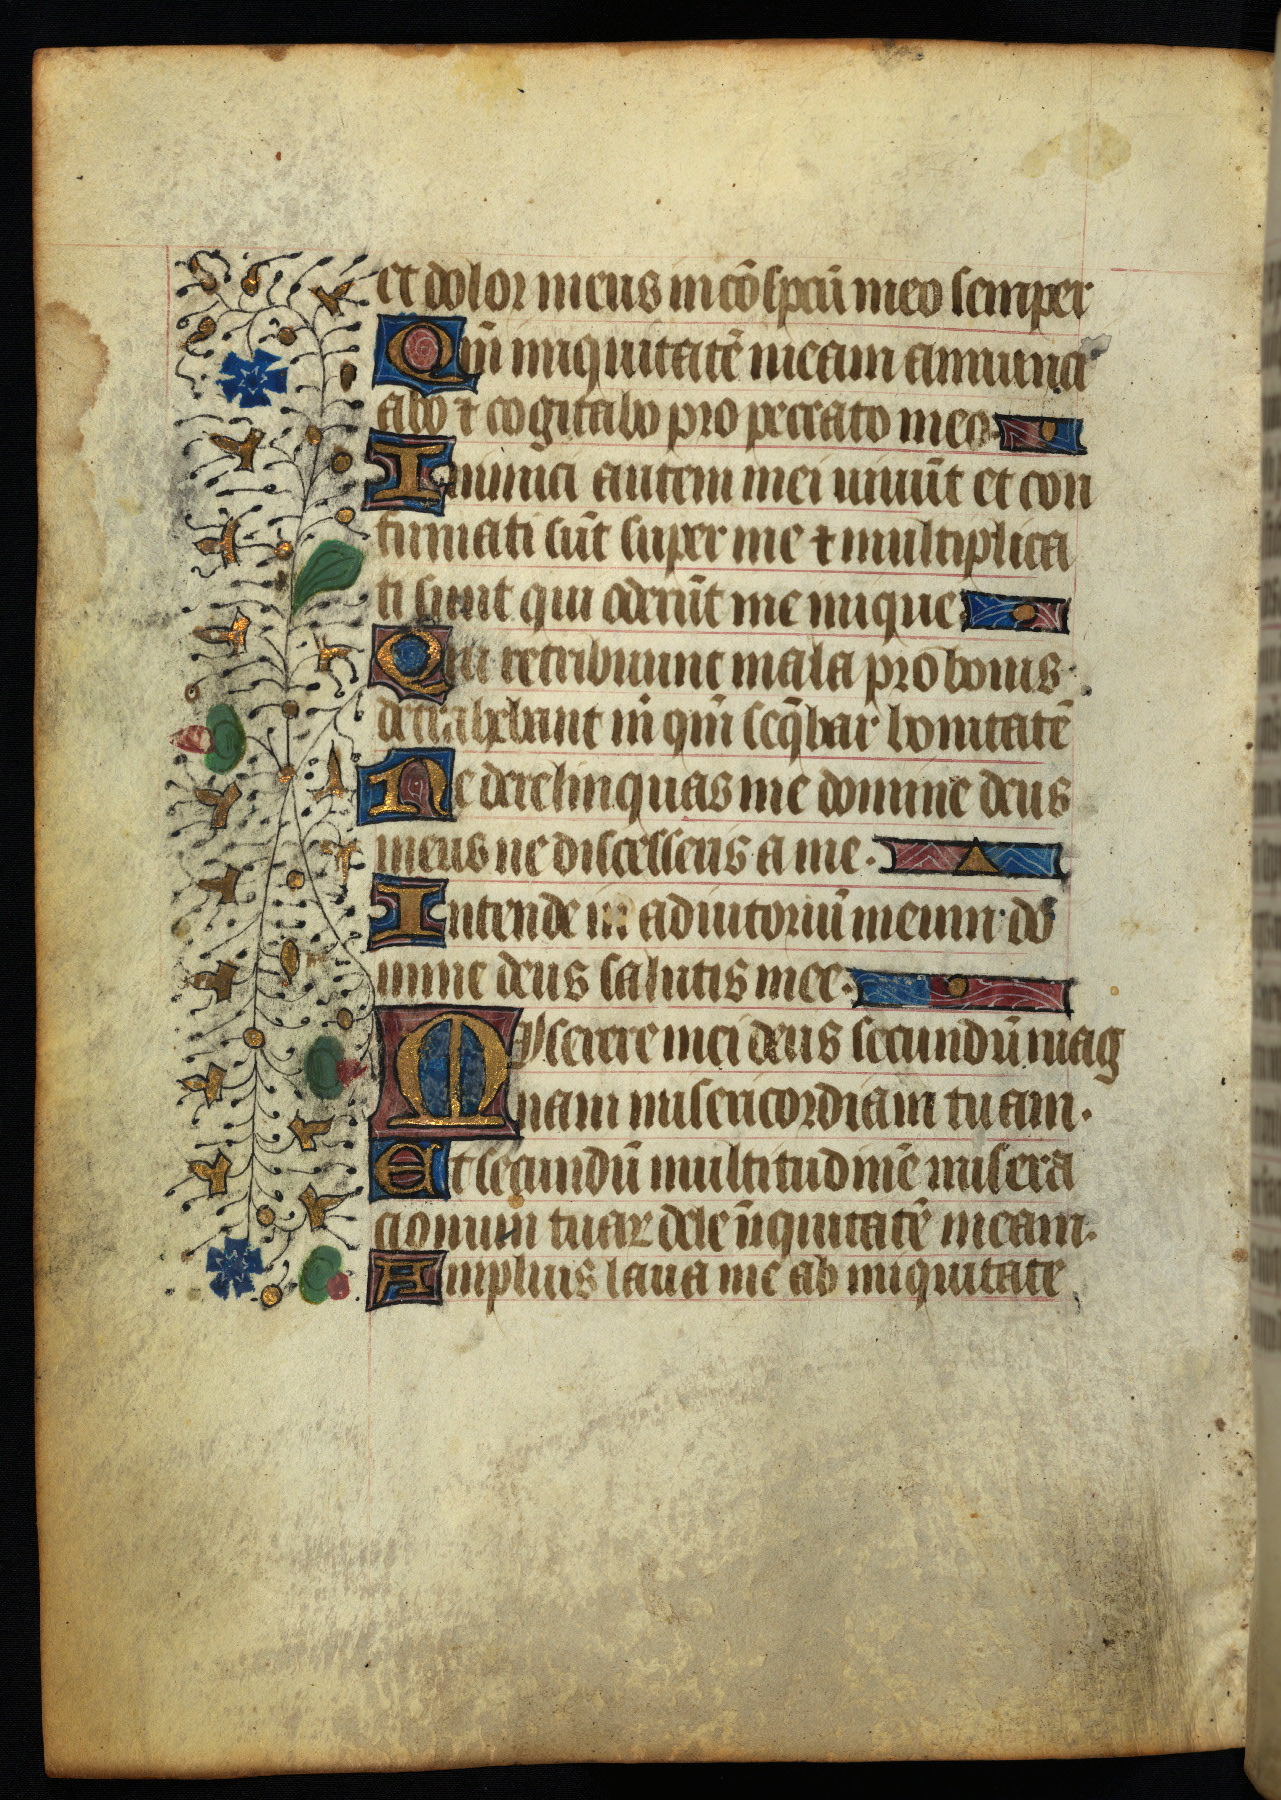 et dolor meus in cōspcū meo semper
Qm̄ iniquitatē meam annunci
abo ⁊ cogitabo pro peccato meo
Inimici autem mei uiuūt et con
firmati sūt super me ⁊ multiplica
ti sunt qui oderūt me inique
Qui retribuunt mala pro bonis
detrahebant m̄ qm̄ seq̄bar bonitatē
Ne derelinquas me domine deus
meus ne discesseris a me.
Intende in adiutoriū meum do
mine deus salutis mee.
Myserere mei deus secundū mag
nam misericordiam tuam.
Et secundū multitudinē misera
cionum tuaꝝ dele īiquitatē meam.
Amplius laua me ab iniquitate